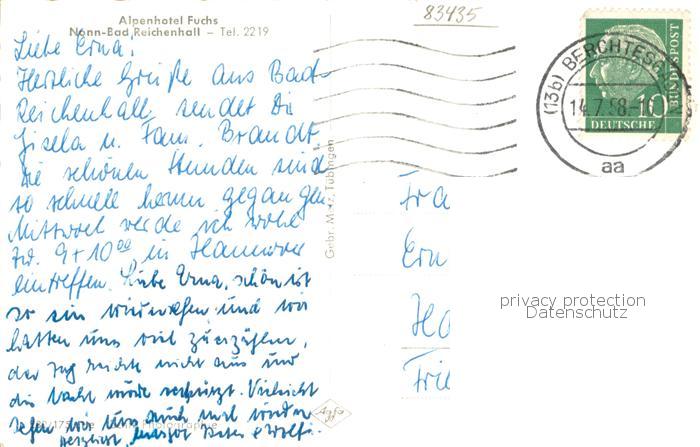 Alpenhotel Fuchs
Nonn-Bad Reichenhall – Tel. 2219
83435
Liebe Erna!
Herzliche Grüße aus Bad-
Reichenhall sendet Dir
Gisela u. Fam. Brandt
Die schönen Stunden sind
so schnell herum gegangen
Mittwoch werde ich wohl
zw. 9 + 10⁰⁰ in Hannover
eintreffen. Liebe Erna, schön ist
so ein Wiedersehen und wir
hatten uns viel zu erzählen,
der Tag reichte nicht aus und
die Nacht wurde verkürzt. Vielleicht
sehen wir uns auch mal wieder
herzlichst
Gebr. Metz, Tübingen
Agfa
Photographie
(13b) BERCHTESGADEN
14.7.58-10
aa
10
DEUTSCHE
BUNDESPOST
Fra
Ern
Ha
Frie
privacy protection
Datenschutz